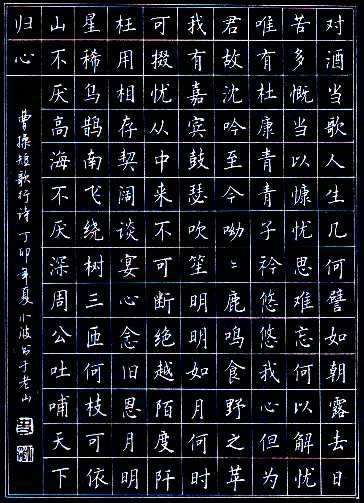 对酒当歌人生几何譬如朝露去日
苦多慨当以慷忧思难忘何以解忧
唯有杜康青青子衿悠悠我心但为
君故沈吟至今呦〻鹿鸣食野之苹
我有嘉宾鼓瑟吹笙明明如月何时
可掇忧从中来不可断绝越陌度阡
枉用相存契阔谈宴心念旧恩月明
星稀乌鹊南飞绕树三匝何枝可依
山不厌高海不厌深周公吐哺天下
归心
曹操短歌行诗丁卯年夏小波书于老山